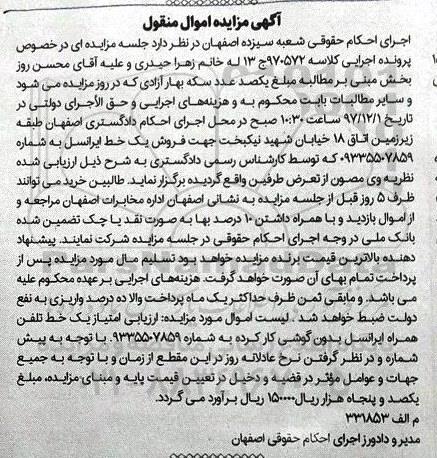 آگهی مزایده اموال منقول
اجرای احکام حقوقی شعبه سیزده اصفهان در نظر دارد جلسه مزایده ای در خصوص
پرونده اجرایی کلاسه ۹۷۰۵۷۲ج ۱۳ له خانم زهرا حیدری و علیه آقای محسن روز
بخش مبنی بر مطالبه مبلغ یکصد عدد سکه بهار آزادی که در روز مزایده می شود
و سایر مطالبات بابت محکوم به و هزینه‌های اجرایی و حق الأجرای دولتی در
تاریخ ۹۷/۱۲/۱ ساعت ۱۰:۳۰ صبح در محل اجرای احکام دادگستری اصفهان طبقه
زیرزمین اتاق ۱۸ خیابان شهید نیکبخت جهت فروش یک خط ایرانسل به شماره
۰۹۳۳۵۵۰۷۸۵۹ که توسط کارشناس رسمی دادگستری به شرح ذیل ارزیابی شده
نظریه وی مصون از تعرض طرفین واقع گردیده برگزار نماید. طالبین خرید می توانند
ظرف ۵ روز قبل از جلسه مزایده به نشانی اصفهان اداره مخابرات اصفهان مراجعه و
از اموال بازدید و با همراه داشتن ۱۰ درصد بها به صورت نقد یا چک تضمین شده
بانک ملی در وجه اجرای احکام حقوقی در جلسه مزایده شرکت نمایند. پیشنهاد
دهنده بالاترین قیمت برنده مزایده خواهد بود تسلیم مال مورد مزایده پس از
پرداخت تمام بهای آن صورت خواهد گرفت. هزینه‌های اجرایی بر عهده محکوم علیه
می باشد. و مابقی ثمن ظرف حداکثر یک ماه پرداخت والا ده درصد واریزی به نفع
دولت ضبط خواهد شد . لیست اموال مورد مزایده: ارزیابی امتیاز یک خط تلفن
همراه ایرانسل بدون گوشی کار کرده به شماره ۰۹۳۳۵۵۰۷۸۵۹ با توجه به پیش
شماره و در نظر گرفتن نرخ عادلانه روز در این مقطع از زمان و با توجه به جمیع
جهات و عوامل مؤثر در قضیه و دخیل در تعیین قیمت پایه و مبنای مزایده، مبلغ
یکصد و پنجاه هزار ریال ۱۵۰۰۰۰ ریال برآورد می گردد.
م الف ۳۳۱۸۵۳
مدیر و دادورز اجرای احکام حقوقی اصفهان